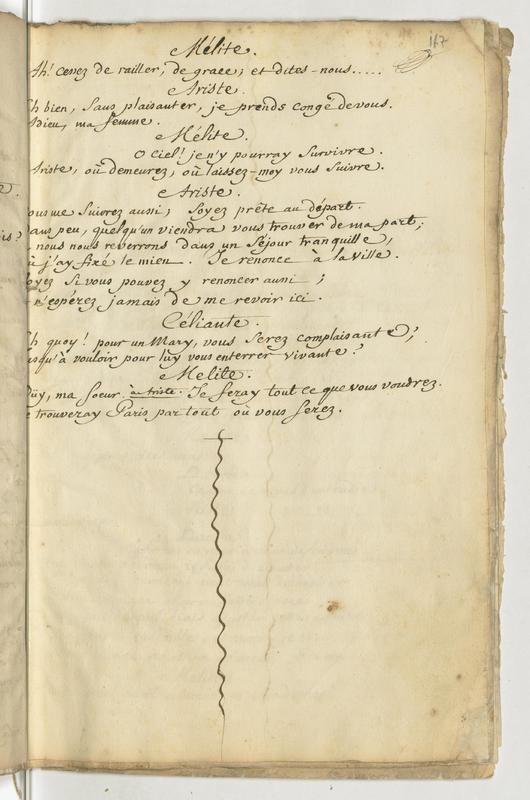 117
Mélite.
Ah! cessez de railler, de grace; et dites-nous.....
Ariste.
Eh bien, sans plaisanter, je prends congé de vous.
Adieu, ma femme.
Mélite.
O ciel! je n'y pourray survivre.
Ariste, où demeurez, où laissez-moy vous suivre.
Ariste.
Vous me suivrez aussi; soyez prête au départ.
Dans peu, quelqu'un viendra vous trouver de ma part;
nous nous reverrons dans un séjour tranquille,
où j'ay fixé le mien. Je renonce à la ville.
Voyez si vous pouvez y renoncer aussi;
n'espérez jamais de me revoir ici.
Céliante.
Eh quoy! pour un Mary, vous serez complaisante,
Jusqu'à vouloir pour luy vous enterrer vivante?
Mélite.
Oüy, ma soeur. à Ariste. Je feray tout ce que vous voudrez.
Je trouveray Paris partout où vous serez.